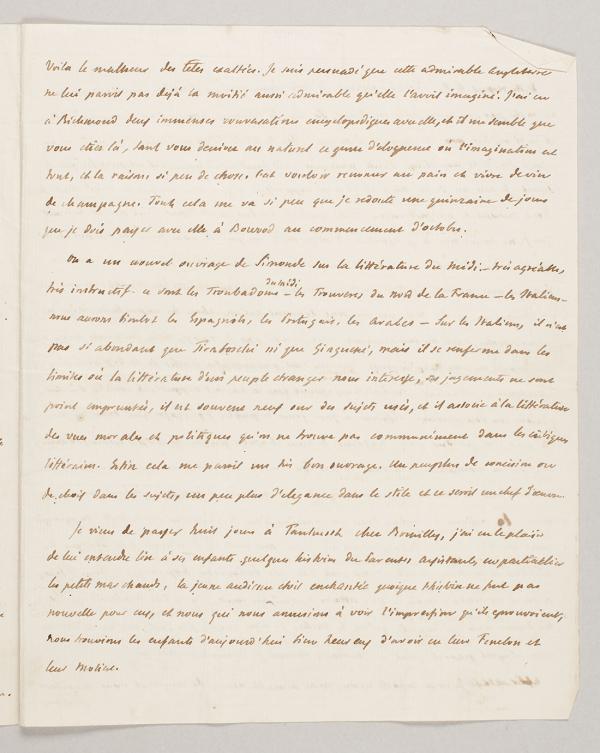 Voila le malheur des têtes exaltées. Je suis persuadé que cette admirable Angleterre
ne lui paroit pas dejà la moitié aussi admirable qu'elle l'avoit imaginé. J'ai eu
à Richmond deux immenses conversations encyclopediques avec elle, et il me semble que
vous etiez là, tant vous decrivez au naturel ce genre d'eloquence où l'imagination est
tout, et la raison si peu de chose. C'est vouloir renoncer au pain et vivre de vin
de champagne. Tout cela me va si peu que je redoute une quinzaine de jours
que je dois passer avec elle à Bowood au commencement d'octobre.
On a un nouvel ouvrage de Simonde sur la littérature du midi – très agréable,
très instructif. ce sont les Troubadours du midi – les Trouveres du nord de la France – les Italiens –
nous aurons bientot les Espagnols, les Portugais, les Arabes – Sur les Italiens, il n'est
pas si abondant que Tiraboschi ni que Ginguené, mais il se renferme dans les
limites où la littérature d'un peuple etranger nous interesse, ses jugements ne sont
point empruntés, il est souvent neuf sur des sujets usés, et il associe à la littérature
des vues morales et politiques qu'on ne trouve pas communément dans les critiques
littéraires. Enfin cela me paroit un très bon ouvrage. Un peu plus de concision ou
de choix dans les sujets, un peu plus d'elegance dans le stile et ce seroit un chef d'œuvre.
Je viens de passer huit jours à chez Romilly, j'ai eu le plaisir
de lui entendre lire à ses enfants quelques histoires du en particulier
les petits marchands, la jeune audience etoit enchantée quoique l'histoire ne fut pas
nouvelle pour eux, et nous qui nous amusions à voir l'impression qu'ils eprouvoient,
nous trouvions les enfants d'aujourd'hui bien heureux d'avoir eu leur Fenelon et
leur Moliere.